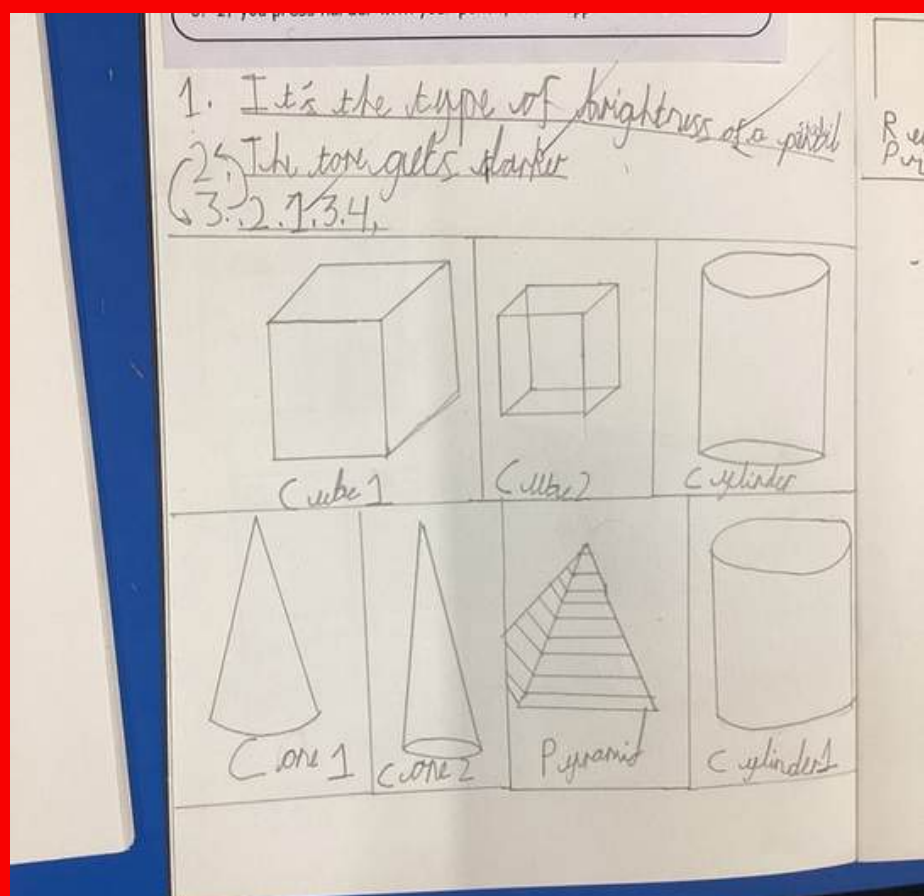 1. It's the type of brightness of a pencil
2. The tone gets darker
3. 2.1.3.4.
Cube 1 Cube 2 Cylinder
Cone 1 Cone 2 Pyramid Cylinder 1